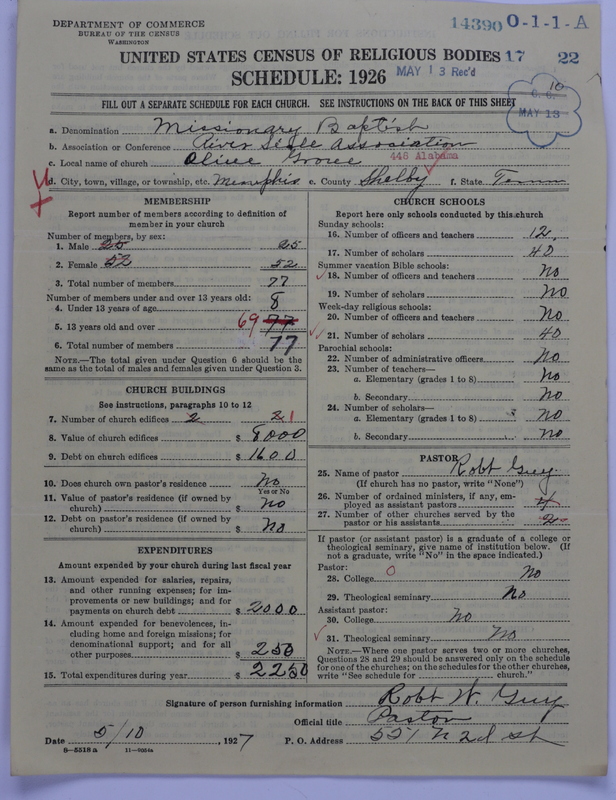 DEPARTMENT OF COMMERCE
BUREAU OF THE CENSUS
WASHINGTON
14390 O-1-1-A
UNITED STATES CENSUS OF RELIGIOUS BODIES 17 22
SCHEDULE: 1926 MAY 13 Rec'd
FILL OUT A SEPARATE SCHEDULE FOR EACH CHURCH. SEE INSTRUCTIONS ON THE BACK OF THIS SHEET
10
MAY 13
a. Denomination Missionary Baptish
b. Association or Conference River Side Association
c. Local name of church Olive Grove 446 Alabama
d. City, town, village, or township, etc. Memphis e. County Shelby f. State Tenn
MEMBERSHIP
Report number of members according to definition of member in your church
Number of members, by sex:
1. Male 25 25
2. Female 52 52
3. Total number of members 77
Number of members under and over 13 years old:
4. Under 13 years of age 8
5. 13 years old and over 69 77
6. Total number of members 77
NOTE.—The total given under Question 6 should be the same as the total of males and females given under Question 3.
CHURCH BUILDINGS
See instructions, paragraphs 10 to 12
7. Number of church edifices 2 2 1
8. Value of church edifices $ 8000
9. Debt on church edifices $ 1600
10. Does church own pastor's residence No
Yes or No
11. Value of pastor's residence (if owned by church) $ No
12. Debt on pastor's residence (if owned by church) $ No
EXPENDITURES
Amount expended by your church during last fiscal year
13. Amount expended for salaries, repairs, and other running expenses; for improvements or new buildings; and for payments on church debt $ 2000
14. Amount expended for benevolences, including home and foreign missions; for denominational support; and for all other purposes $ 250
15. Total expenditures during year $ 2250
CHURCH SCHOOLS
Report here only schools conducted by this church
Sunday schools:
16. Number of officers and teachers 12
17. Number of scholars 40
Summer vacation Bible schools:
18. Number of officers and teachers No
19. Number of scholars No
Week-day religious schools:
20. Number of officers and teachers No
21. Number of scholars 40
Parochial schools:
22. Number of administrative officers No
23. Number of teachers—
a. Elementary (grades 1 to 8) No
b. Secondary No
24. Number of scholars—
a. Elementary (grades 1 to 8) No
b. Secondary No
PASTOR
25. Name of pastor Robt Guy
(If church has no pastor, write "None")
26. Number of ordained ministers, if any, employed as assistant pastors 4
27. Number of other churches served by the pastor or his assistants 2
If pastor (or assistant pastor) is a graduate of a college or theological seminary, give name of institution below. (If not a graduate, write "No" in the space indicated.)
Pastor:
28. College O No
29. Theological seminary No
Assistant pastor:
30. College No
31. Theological seminary No
NOTE.—Where one pastor serves two or more churches, Questions 28 and 29 should be answered only on the schedule for one of the churches; on the schedules for the other churches, write "See schedule for church."
Signature of person furnishing information Robt W. Guy
Official title Pastor
Date 5/10, 1927 P. O. Address 521 N 2d St
8-5518 a 11-9054a